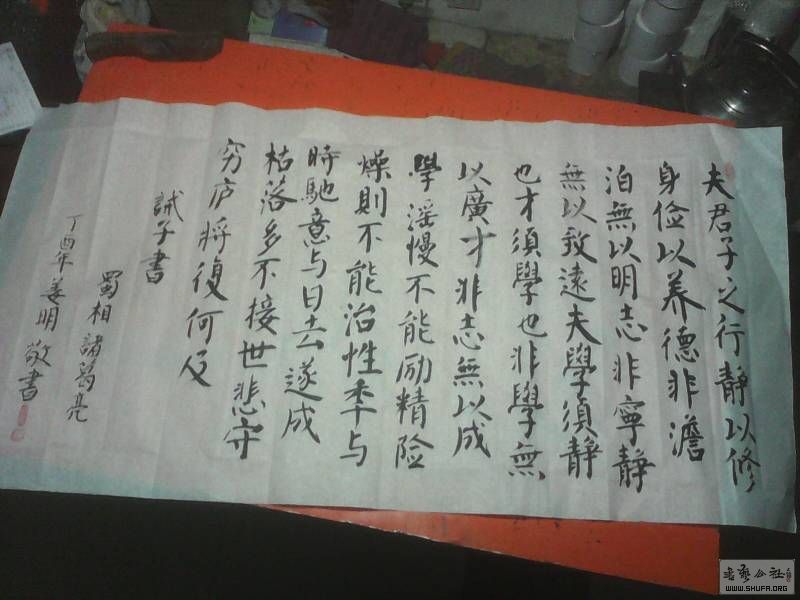 夫君子之行静以修
身俭以养德非澹
泊無以明志非寧静
無以致遠夫學須静
也才須學也非學無
以廣才非志無以成
學滛慢不能励精险
燥则不能治性年与
時馳意与日去遂成
枯落多不接世悲守
穷庐將復何及
誡子書
蜀相諸葛亮
丁酉年姜明敬書
WWW.SHUFA.ORG